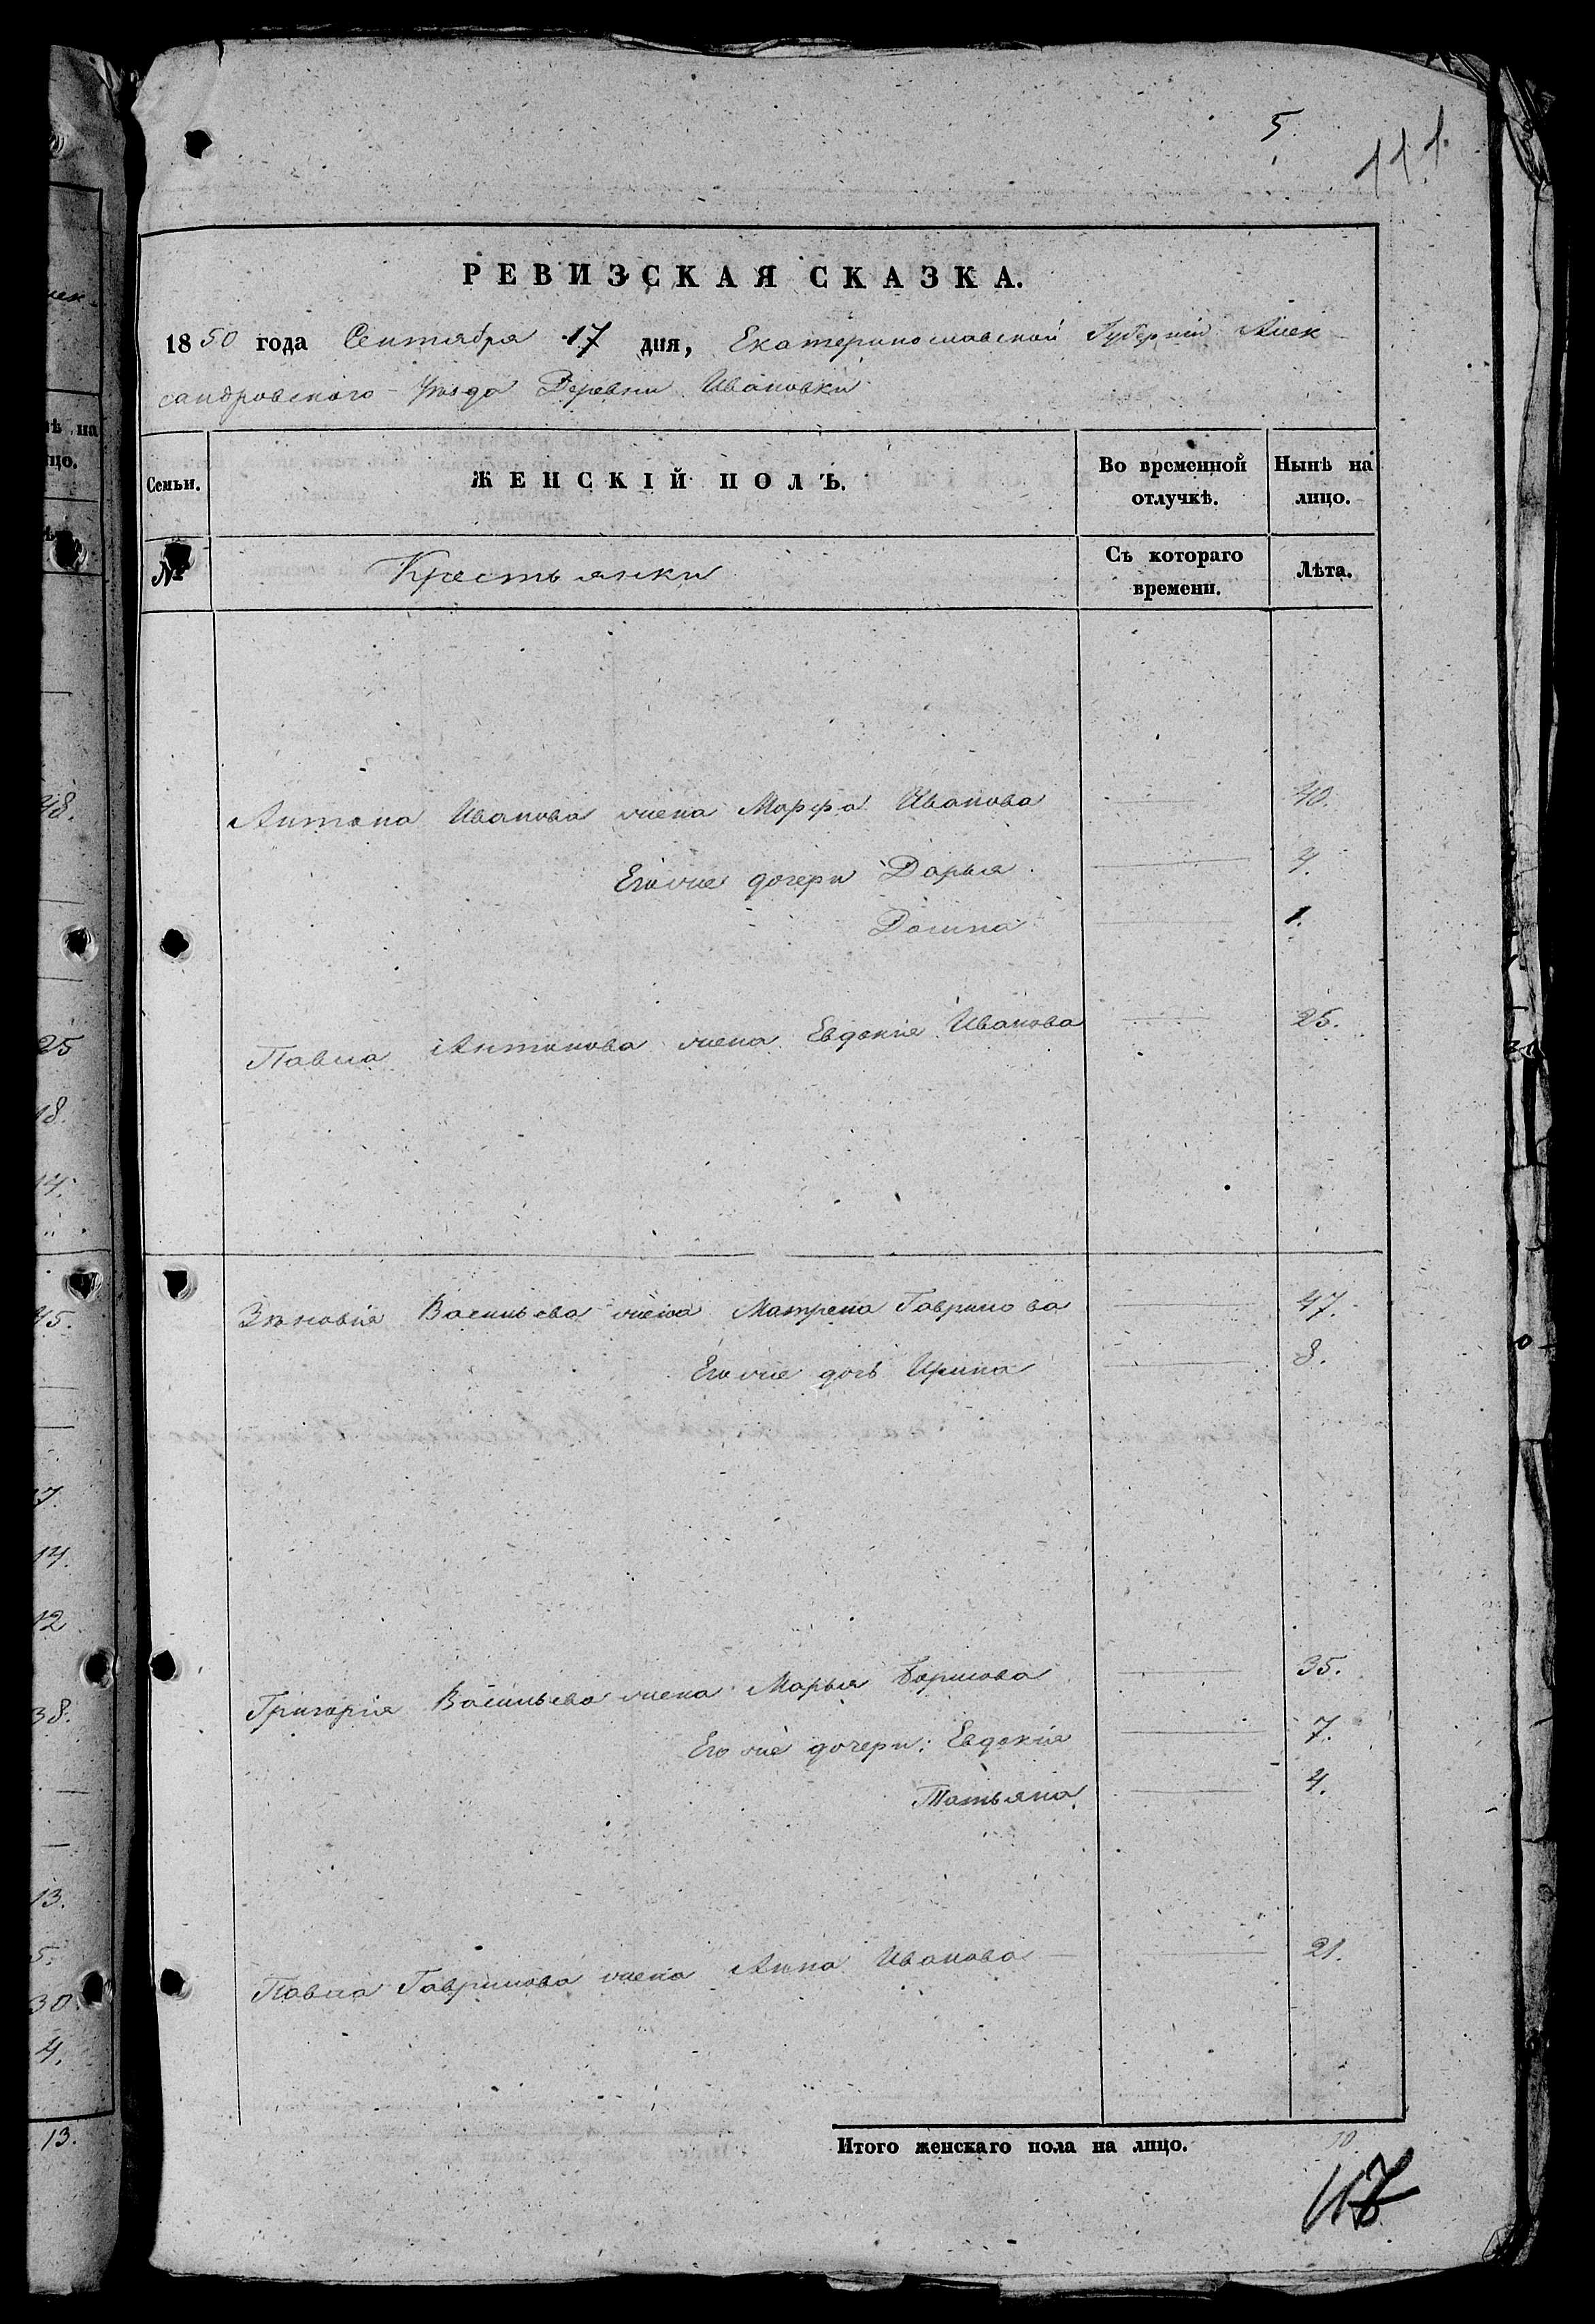 5.
111.
РЕВИЗСКАЯ СКАЗКА.
1850 года Сентября 17 дня, Екатеринославской Губерніи Алек
сандровского Уѣзда Деревни Ивановки
Семьи.
ЖЕНСКІЙ ПОЛЪ.
Во временной отлучкѣ.
Нынѣ на лицо.
№
Крестьянки
Съ котораго времени.
Лѣта.
Антона Иванова жена Марфа Иванова 40.
Его же дочери Дарья 4.
Домна 1.
Павла Антонова жена Евдокія Иванова 25.
Зѣновія Васильева жена Матрена Гаврилова 47.
Его же дочь Ирина 8.
Григорія Васильева жена Марья Борисова 35.
Его же дочери: Евдокія 7.
Татьяна 4.
Павла Гаврилова жена Анна Иванова 21.
Итого женскаго пола на лицо. 10.
48.
25
18.
14.
45.
14.
12
38.
13.
5.
30.
4.
13.